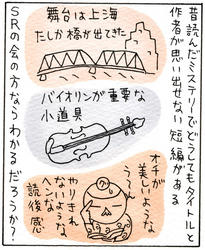 昔読んだミステリーでどうしてもタイトルと
作者が思い出せない短編がある
舞台は上海
たしか橋が出てきた
バイオリンが重要な
小道具
オチが
美しーような
やりきれ
なーいような、
ヘンな
読後感
う〜
SRの会の方ならわかるだろうか?